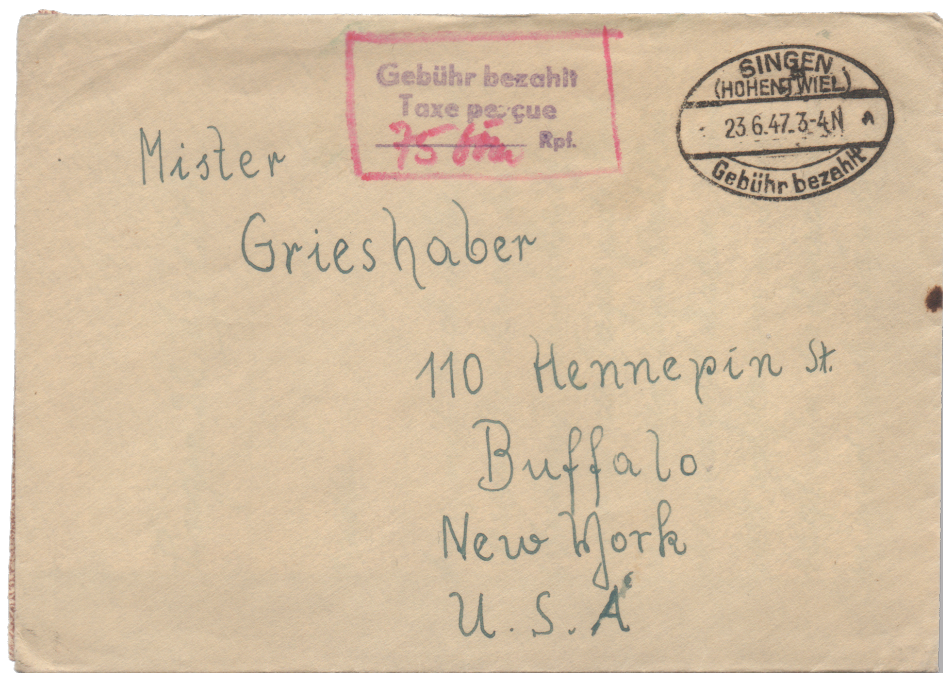 Gebühr bezahlt
Taxe perçue
75 Rpf.
SINGEN
(HOHENTWIEL)
23.6.47.3-4N
a
Gebühr bezahlt
Mister
Grieshaber
110 Hennepin St.
Buffalo
New York
U.S.A